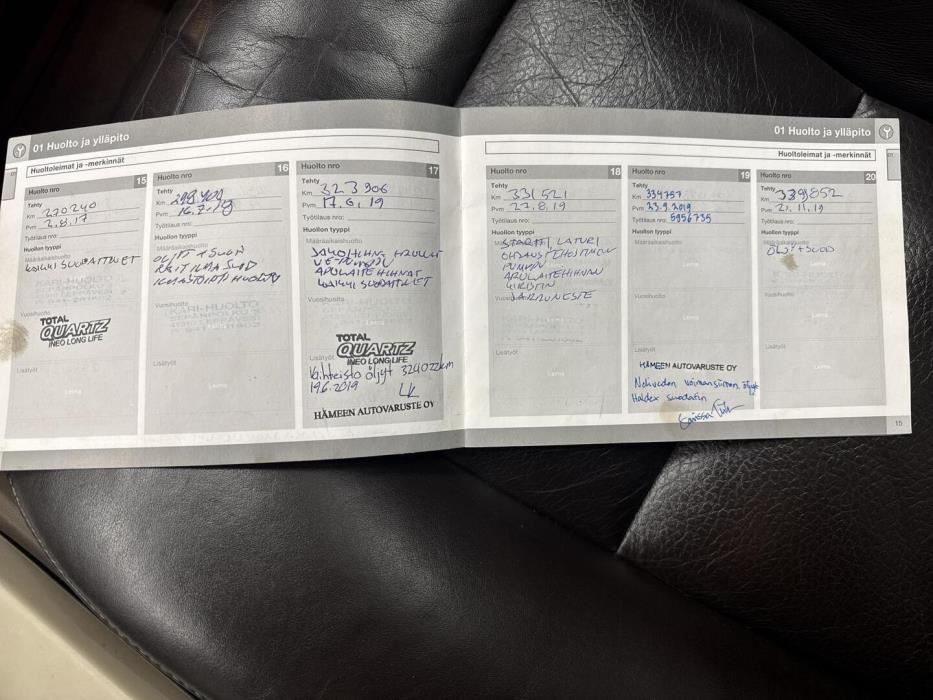 01 Huolto ja ylläpito
Huoltoleimat ja -merkinnät
Huolto nro 15
Km 270240
Pvm 2.8.17
Työtilaus nro:
Huollon tyyppi
Määräaikaishuolto
KAIKKI SUODATTIMET
Vuosihuolto
TOTAL
QUARTZ
INEO LONG LIFE
Lisätyöt
Huolto nro 16
Tehty
Km
Pvm
Työtilaus nro:
Huollon tyyppi
Määräaikaishuolto
ÖLJYT + SUOD
RAITISILMA SUOD
ILMASTOINTI HUOLTO
Vuosihuolto
Lisätyöt
Leima
Huolto nro 17
Tehty
Km 323906
Pvm 17.6.19
Työtilaus nro:
Huollon tyyppi
Määräaikaishuolto
JAKOHIHNA, RULLAT
VETPUMPPU
APULAITEHIHNAT
KAIKKI SUODATTIMET
Vuosihuolto
TOTAL
QUARTZ
INEO LONG LIFE
Lisätyöt
Vaihteisto öljyt 324022km
19.6.2019
HÄMEEN AUTOVARUSTE OY
01 Huolto ja ylläpito
Huoltoleimat ja -merkinnät
Huolto nro 18
Tehty
Km 331521
Pvm 22.8.19
Työtilaus nro:
Huollon tyyppi
Määräaikaishuolto
STARTTI, LATURI
OHJAUSTEHOSTIMEN
PUMPPU
APULAITEHIHNAN
KIRISTIN
JARRUNESTE
Vuosihuolto
Leima
Lisätyöt
Huolto nro 19
Tehty
Km 334757
Pvm 23.9.2019
Työtilaus nro: 5956735
Huollon tyyppi
Määräaikaishuolto
Vuosihuolto
Leima
Lisätyöt
HÄMEEN AUTOVARUSTE OY
Nelivedon voimansiirron öljyt
Haldex suodatin
Huolto nro 20
Tehty
Km 339852
Pvm 21.11.19
Työtilaus nro:
Huollon tyyppi
Määräaikaishuolto
ÖLJY + SUOD
Vuosihuolto
Leima
Lisätyöt
Leima
15